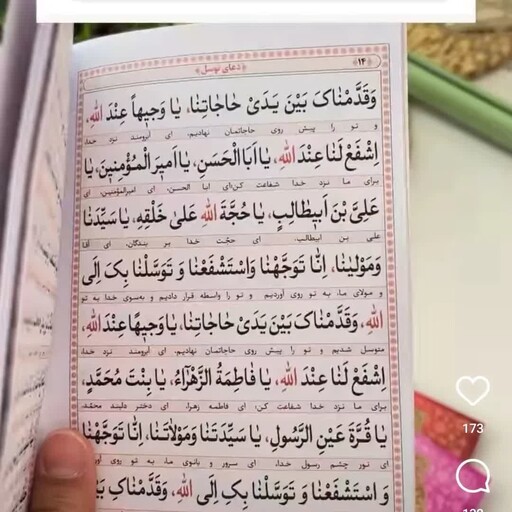 ۱۴
دعای توسل
وَقَدَّمْنٰاکَ بَیْنَ یَدَیْ حٰاجٰاتِنٰا، یٰا وَجیٖهاً عِنْدَ اللهِ،
و تو را پیش روی حاجاتمان نهادیم، ای آبرومند نزد خدا
اِشْفَعْ لَنٰا عِنْدَ اللهِ، یٰا اَبَا الْحَسَنِ، یٰا اَمیٖرَ الْمُؤْمِنیٖنَ، یٰا
برای ما نزد خدا شفاعت کن؛ای ابا الحسن، ای امیرالمؤمنین، ای
عَلِیَّ بْنَ اَبیٖطٰالِبٍ، یٰا حُجَّةَ اللهِ عَلیٰ خَلْقِهِ، یٰا سَیِّدَنٰا
علی بن ابیطالب، ای حجّت خدا بر بندگان، ای آقا
وَمَوْلیٰنٰا، اِنّٰا تَوَجَّهْنٰا وَاسْتَشْفَعْنٰا وَ تَوَسَّلْنٰا بِکَ اِلَی
و مولای ما، به تو روی آوردیم و تو را واسطه قرار دادیم و به‌سوی خدا به تو
اللهِ، وَقَدَّمْنٰاکَ بَیْنَ یَدَیْ حٰاجٰاتِنٰا، یٰا وَجیٖهاً عِنْدَ اللهِ،
متوسل شدیم و تو را پیش روی حاجاتمان نهادیم، ای آبرومند نزد خدا،
اِشْفَعْ لَنٰا عِنْدَ اللهِ، یٰا فٰاطِمَةُ الزَّهْرٰاءُ، یٰا بِنْتَ مُحَمَّدٍ،
برای ما نزد خدا شفاعت کن؛ ای فاطمه زهرا، ای دختر دلبند محمّد،
یٰا قُرَّةَ عَیْنِ الرَّسُولِ، یٰا سَیِّدَتَنٰا وَمَوْلٰاتَنٰا، اِنّٰا تَوَجَّهْنٰا
ای نور چشم رسول خدا، ای سرور و بانوی ما، به تو روی آوردیم
وَ اسْتَشْفَعْنٰا وَ تَوَسَّلْنٰا بِکِ اِلَی اللهِ، وَقَدَّمْنٰاکِ بَیْنَ
173